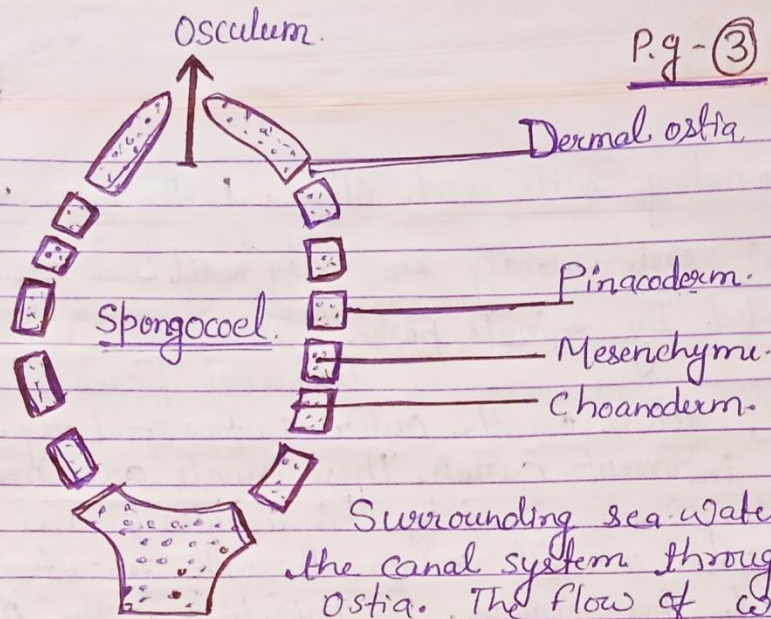 Osculum.
P.g - 3
Dermal ostia
Pinacoderm.
Spongocoel.
Mesenchyme.
Choanoderm.
Surrounding sea-wate
the canal system throug
Ostia. The flow of